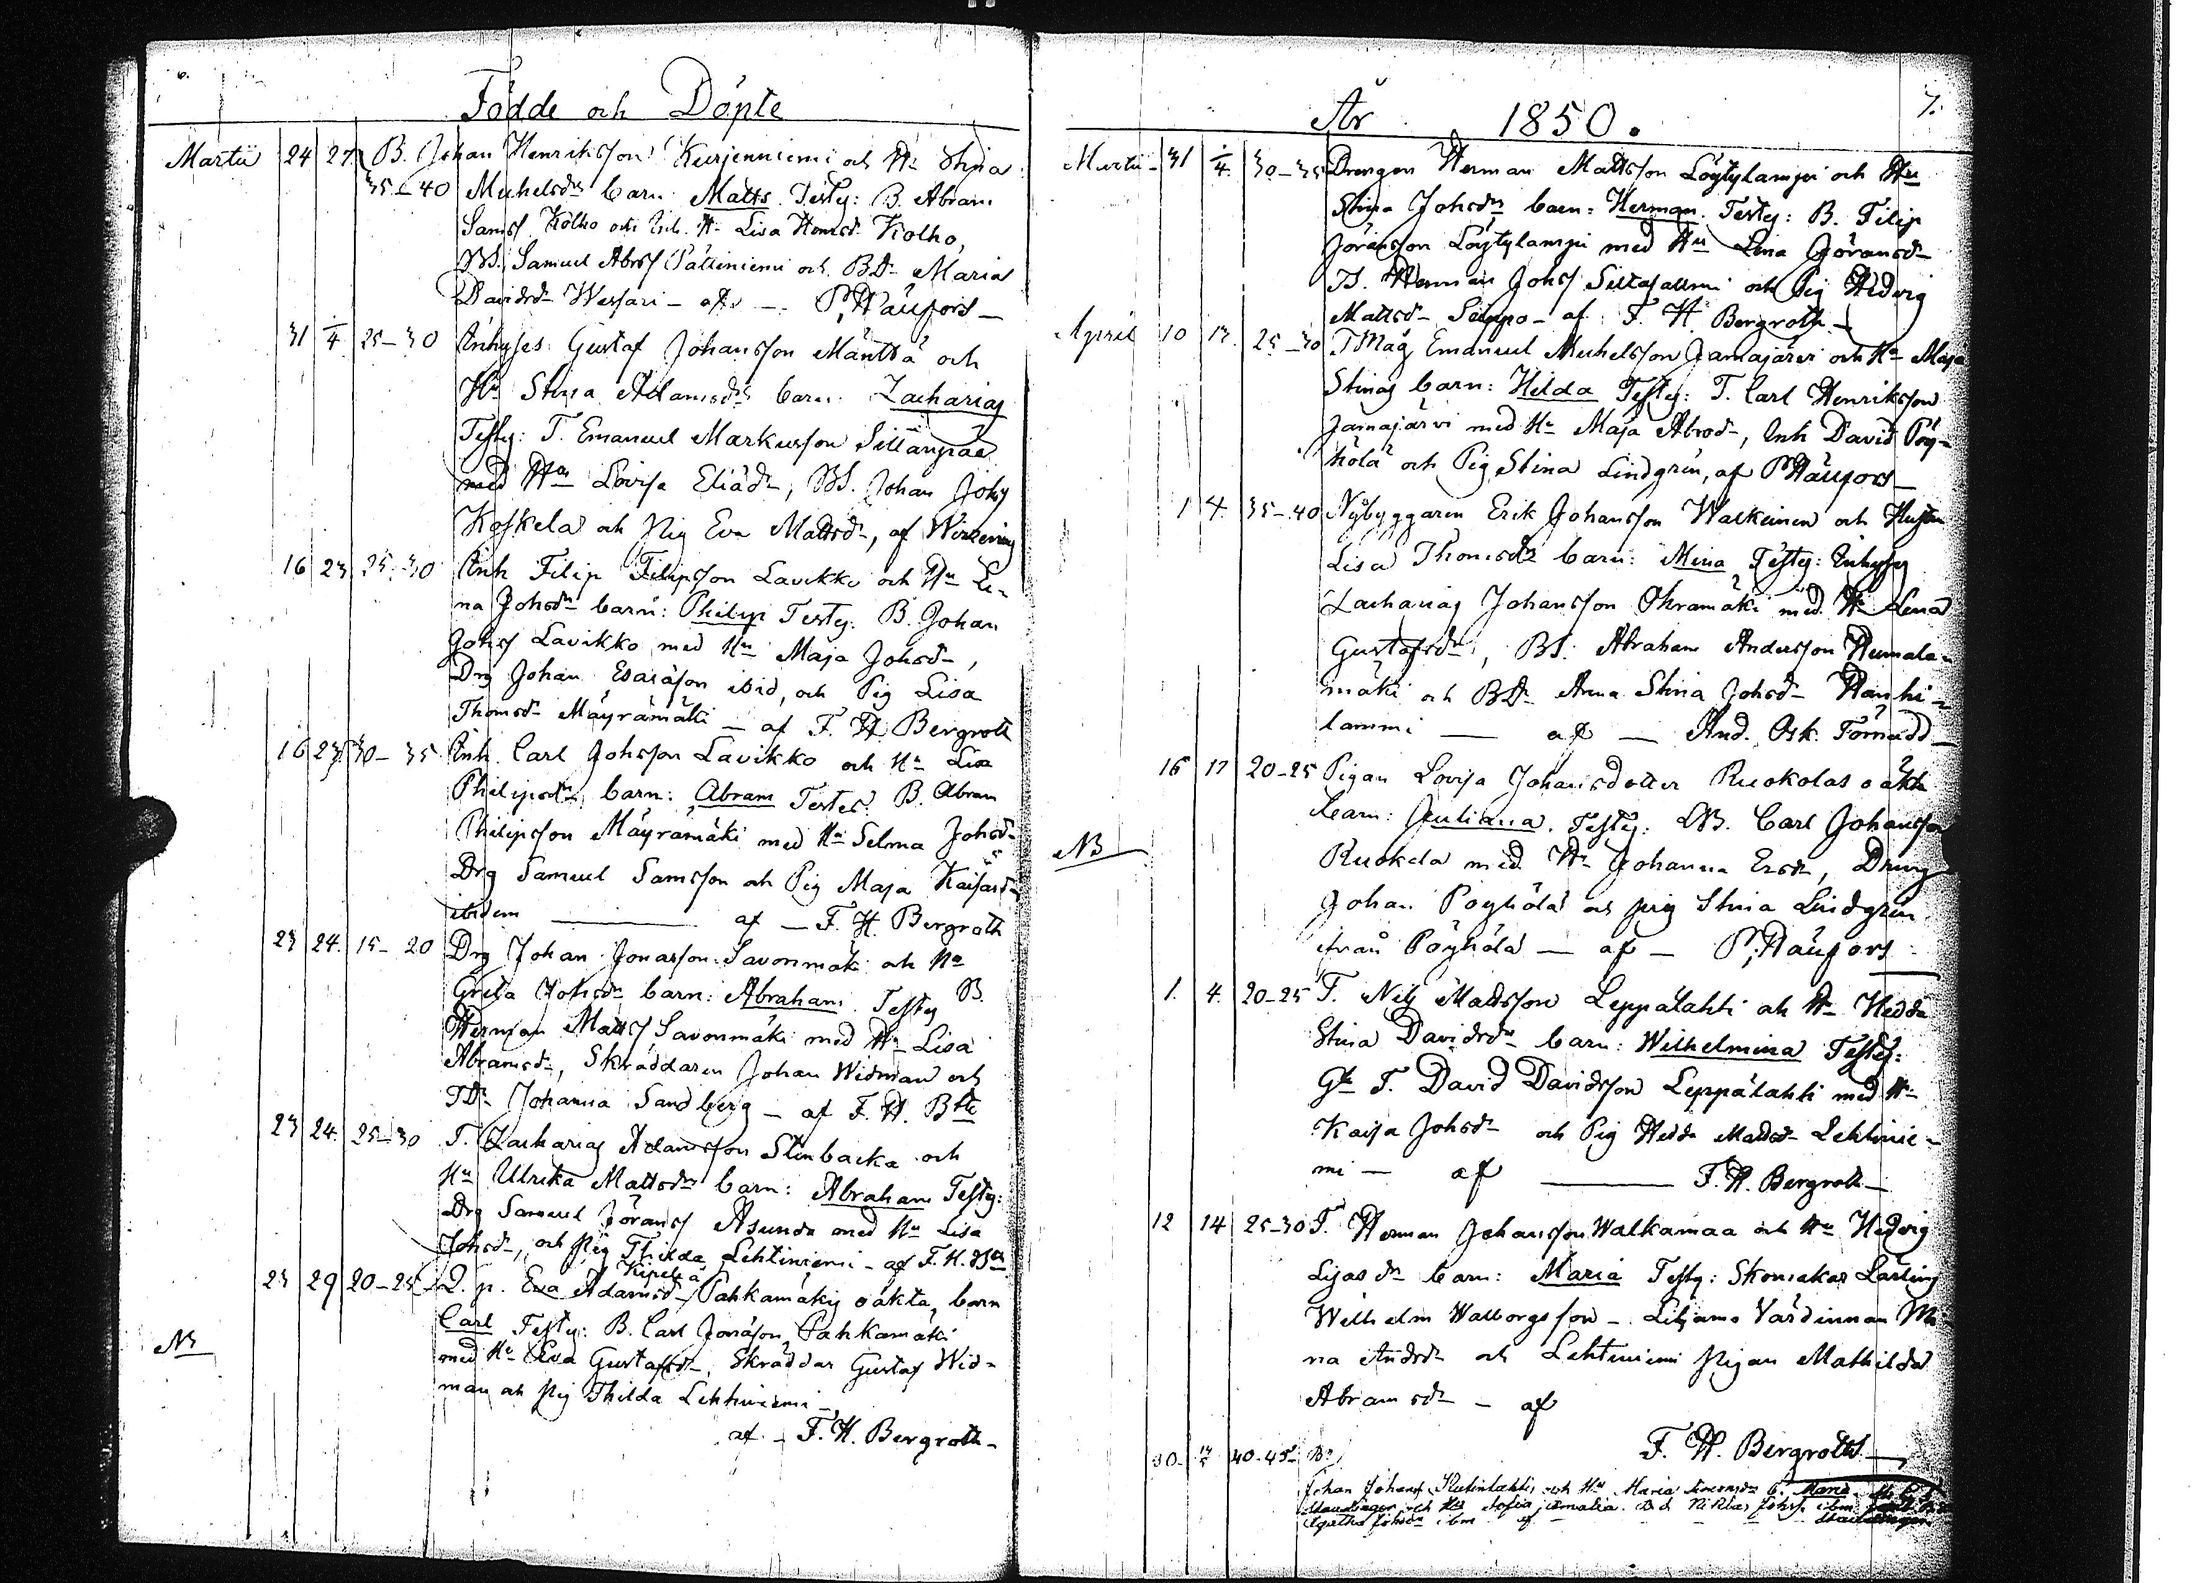 6.
Födde och Döpte
Martii 24 27. B. Johan Henriksson Kurjenniemi och Hu Stina
35-40 Michelsdr barn: Matts. Testes: B. Abram
Sams Kolho och Inh. Hu Lisa Henrsdr Kolho,
BS. Samuel Abrss Pätiniemi och BDr Maria
Davidsdr Wesjari - af - P. Häufors -
31 1/4 25-30 Inhyses Gustaf Johansson Mäntsä och
Hu Stina Adamsdrs barn. Zacharias
Testes: T. Emanuel Markusson Sillanpää
med Hu Lovisa Eliædr, BS. Johan Johs
Koskela och Pig Eva Mattsdr, af
16 23 25-30 Inh Filip Filipsson Lavikko och Hu Li-
na Johsdr barn: Philip Testes. B. Johan
Johss Lavikko med Hu Maja Johsdr,
Drg Johan Esaiæson ibid, och Pig Lisa
Thomsdr Mäyrämäki - af F. H. Bergroth
16 23. 30-35 Inh. Carl Johsson Lavikko och Hu Lisa
Philipsdrs barn: Abram Testes. B. Abram
Philipsson Mäyrämäki med Hu Selma Johsdr
Drg Samuel Samsson och Pig Maja Kaisasdr
ibidem — af - F. H. Bergroth
23 24. 15-20 Drg Johan Jonasson Savonmäki och Hu
Greta Johsdr barn: Abraham. Testes B.
Herman Mattss Savonmäki med Hu Lisa
Abramsdr, Skräddaren Johan Widman och
TDr Johanna Sandberg - af F. H. Bth
23 24. 25-30 T. Zacharias Adamsson Stenbacka och
Hu Ulrika Mattsdrs barn: Abraham Testes:
Drg Samuel Jöranss Asunda med Hu Lisa
Johsdr, och Pig Thilda Lehtiniemi - af F. H. Bth
Kipelä
23 29 20-25 Q. p. Eva Adamsdr Pahkamäkis oäkta barn
Carl Testes: B. Carl Jonæson Pahkamäki
NB med Hu Eva Gustafsdr, Skräddar Gustaf Wid-
man och Pig Thilda Lehtiniemi -
af - F. H. Bergroth -
7.
År 1850.
Martii - 31 1/4. 30-35 Drengen Herman Mattsson Löytylampi och Hu
Stina Johsdrs barn: Herman. Testes: B. Filip
Jöransson Löytylampi med Hu Lina Jöransdr
B. Herman Johss Siltasalmi och Pig Hedvig
Mattsdr Seppo - af F. H. Bergroth -
April 10 13. 25-30 TMåg Emanuel Michelsson Jamajärvi och Hu Maja
Stinas barn: Hilda Testes: T. Carl Henriksson
Jamajärvi med Hu Maja Abrsdr, Inh David Pöy-
hölä och Pig Stina Lindgren, af P. Häufors -
1 4. 35-40 Nybyggaren Erik Johansson Walkeinen och Hustru
Lisa Thomsdr barn: Mina Testes: Inhyses
Zacharias Johansson Ohramäki med Hu Lena
Gustafsdr, BS. Abraham Andersson Humala-
mäki och BDr Anna Stina Johsdr Hanhi-
lammi — af — And. Osk. Törnudd -
16 17 20-25 Pigan Lovisa Johansdotter Ruokolas oäkta
barn: Juliana. Testes: B. Carl Johansson
NB Ruokola med Hu Johanna Ersdr, Dreng
Johan Pöyhölä och pig Stina Lindgren
från Pöyhölä - af - P. Häufors -
1. 4. 20-25 T. Nils Mattsson Leppälahti och Hu Hedda
Stina Davidsdr barn: Wilhelmina Testes:
Gl T. David Davidsson Leppälahti med Hu
Kaisa Johsdr och Pig Hedda Mattsdr Lehtinie-
mi - af — F. H. Bergroth -
12 14 25-30 T. Herman Johansson Walkamaa och Hu Hedvig
Lisas dr barn: Maria Testes: Skomakar Lärling
Wilhelm Walborgsson - Liljamo Värdinnan Mi-
na Andrsdr och Lehtiniemi Pigan Mathilda
Abramsdr - af
F. H. Bergroth -
30 40-45 B.
Johan Johanss och Hu Maria Simonsdr b. Maria
och Hu Sofia Amalia Niklas Johss ibm
Agatha Johsdr ibm af